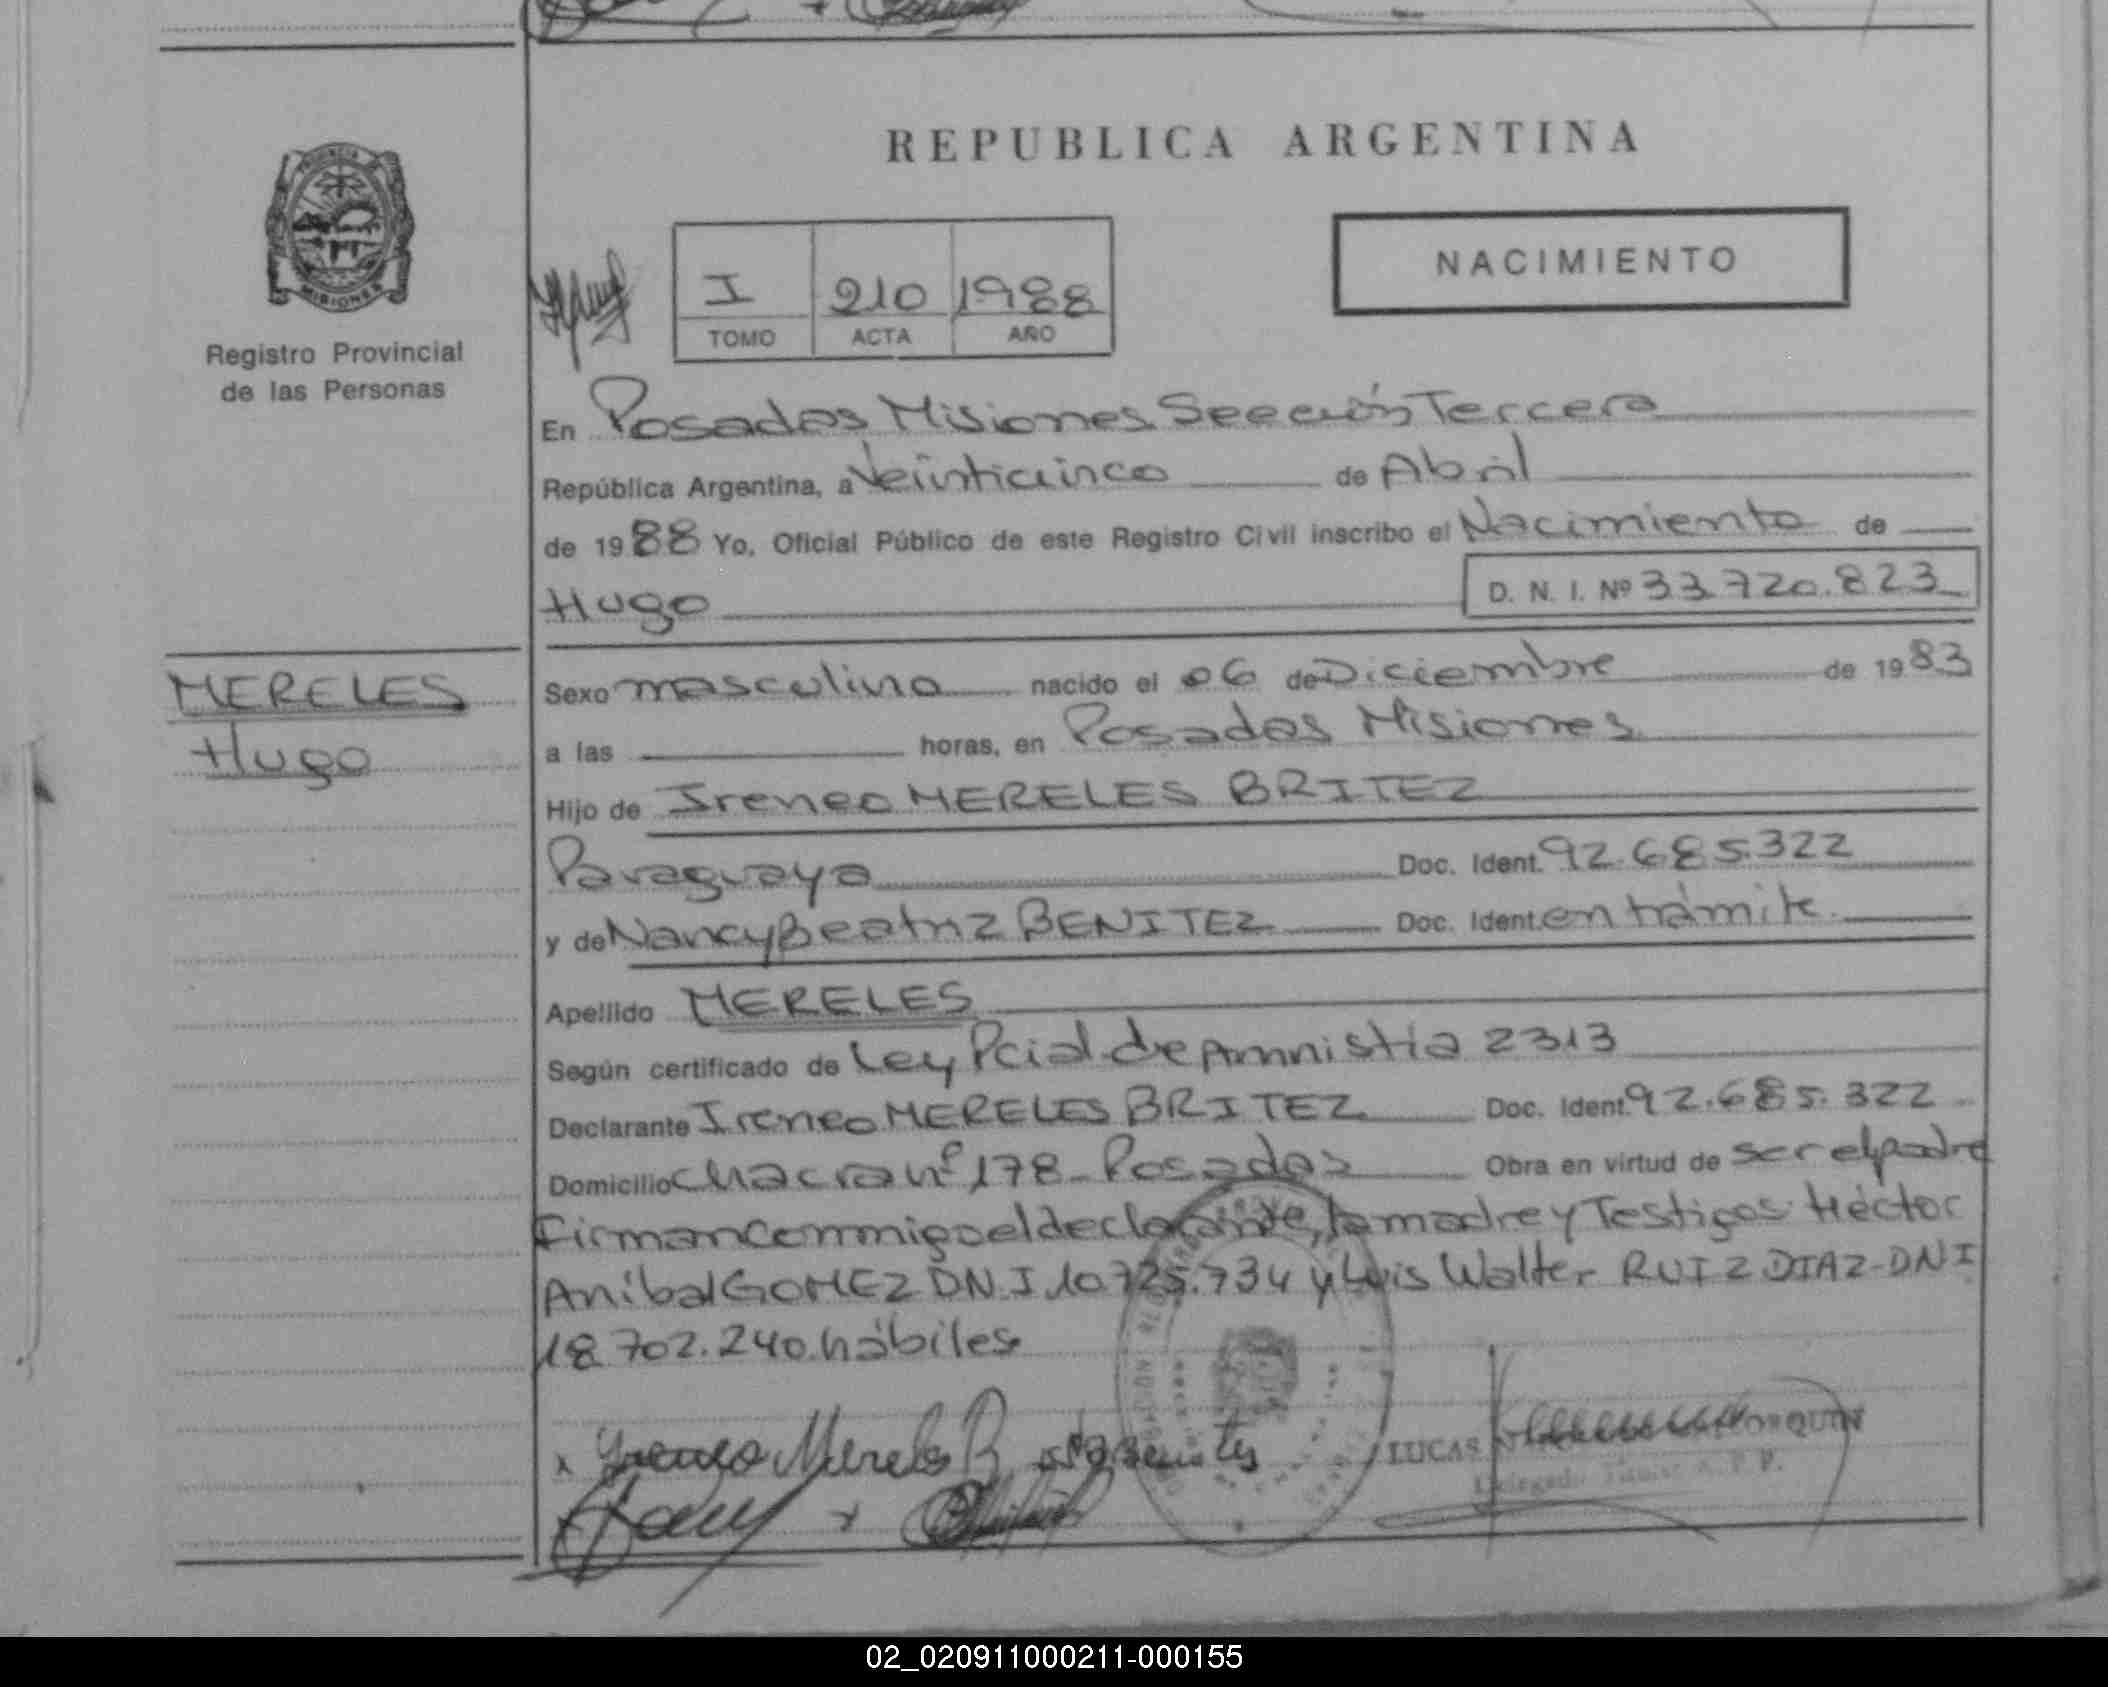 REPUBLICA ARGENTINA
PROVINCIA
MISIONES
Registro Provincial
de las Personas
I 210 1988
TOMO ACTA AÑO
NACIMIENTO
En Posadas Misiones Sección Tercera
República Argentina, a Veinticinco de Abril
de 1988 Yo, Oficial Público de este Registro Civil inscribo el Nacimiento de
Hugo D. N. I. Nº 33.720.823
MERELES
Hugo
Sexo masculino nacido el 06 de Diciembre de 1983
a las horas, en Posadas Misiones
Hijo de Ireneo MERELES BRITEZ
Paraguaya Doc. Ident. 92.685.322
y de Nancy Beatriz BENITEZ Doc. Ident. en trámite.
Apellido MERELES
Según certificado de Ley Pcial de Amnistía 2313
Declarante Ireneo MERELES BRITEZ Doc. Ident. 92.685.322
Domicilio chacra nº 178 - Posadas Obra en virtud de ser el padre
Firman conmigo el declarante, la madre y Testigos: Héctor
Anibal GOMEZ DN.I 10.725.734 y Luis Walter RUIZ DIAZ - DNI
18.702.240 hábiles
x Yreneo Mereles B
LUCAS
02_020911000211-000155